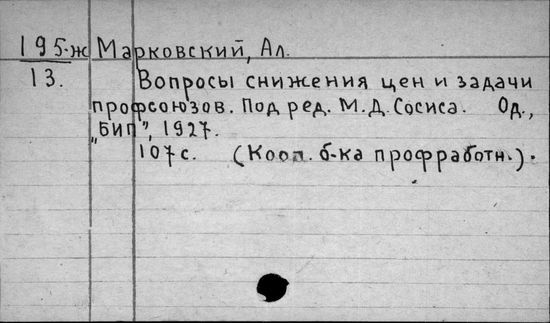 195-ж Марковский, Ал.
13. Вопросы снижения цен и задачи
профсоюзов. Под ред. М.Д. Сосиса. Од.,
„БИП", 1927.
107 с. (Кооп. б-ка профработн.).